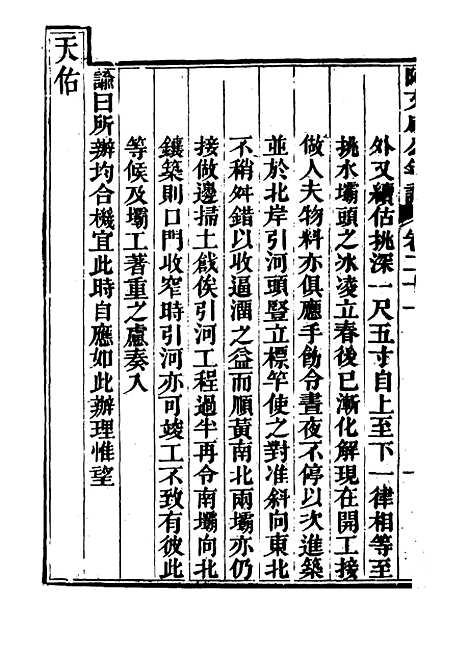 阿文成公年譜 卷二十一
外又續估挑深一尺五寸自上至下一律相等至
挑水壩頭之冰凌立春後已漸化解現在開工接
做人夫物料亦俱應手飭令晝夜不停以次進築
並於北岸引河頭豎立標竿使之對准斜向東北
不稍舛錯以收逼溜之益而順黃南北兩壩亦仍
接做邊掃土戧俟引河工程過半再令南壩向北
鑲築則口門收窄時引河亦可竣工不致有彼此
等候及壩工著重之慮奏入
諭曰所辦均合機宜此時自應如此辦理惟望
天佑